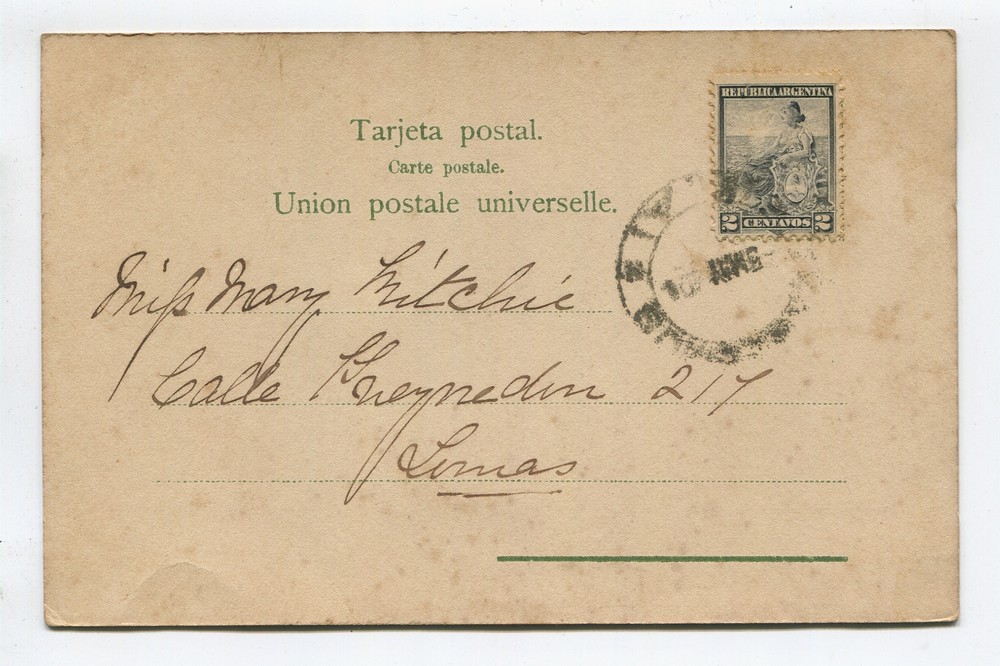 REPÚBLICA ARGENTINA
2 CENTAVOS 2
Tarjeta postal.
Carte postale.
Union postale universelle.
Miss Mary Kitchie
Calle 217
Lomas